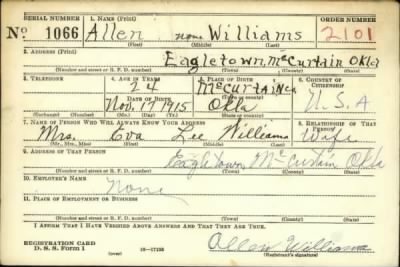 SERIAL NUMBER 1. NAME (Print) ORDER NUMBER
No 1066 Allen none Williams 2101
(First) (Middle) (Last)
2. ADDRESS (Print)
Eagletown, McCurtain Okla
(Number and street or R. F. D. number) (Town) (County) (State)
3. TELEPHONE 4. AGE IN YEARS 5. PLACE OF BIRTH 6. COUNTRY OF CITIZENSHIP
24 McCurtain Co
DATE OF BIRTH
Nov. 17 1915 Okla U.S.A
(Exchange) (Number) (Mo.) (Day) (Yr.) (Town or county) (State or country)
7. NAME OF PERSON WHO WILL ALWAYS KNOW YOUR ADDRESS 8. RELATIONSHIP OF THAT PERSON
Mrs. Eva Lee Williams Wife
(Mr., Mrs., Miss) (First) (Middle) (Last)
9. ADDRESS OF THAT PERSON
Eagletown McCurtain Okla
(Number and street or R. F. D. number) (Town) (County) (State)
10. EMPLOYER'S NAME
None
11. PLACE OF EMPLOYMENT OR BUSINESS
(Number and street or R. F. D. number) (Town) (County) (State)
I AFFIRM THAT I HAVE VERIFIED ABOVE ANSWERS AND THAT THEY ARE TRUE.
REGISTRATION CARD
D. S. S. Form 1 (over) 16—17105 Allen Williams
(Registrant's signature)